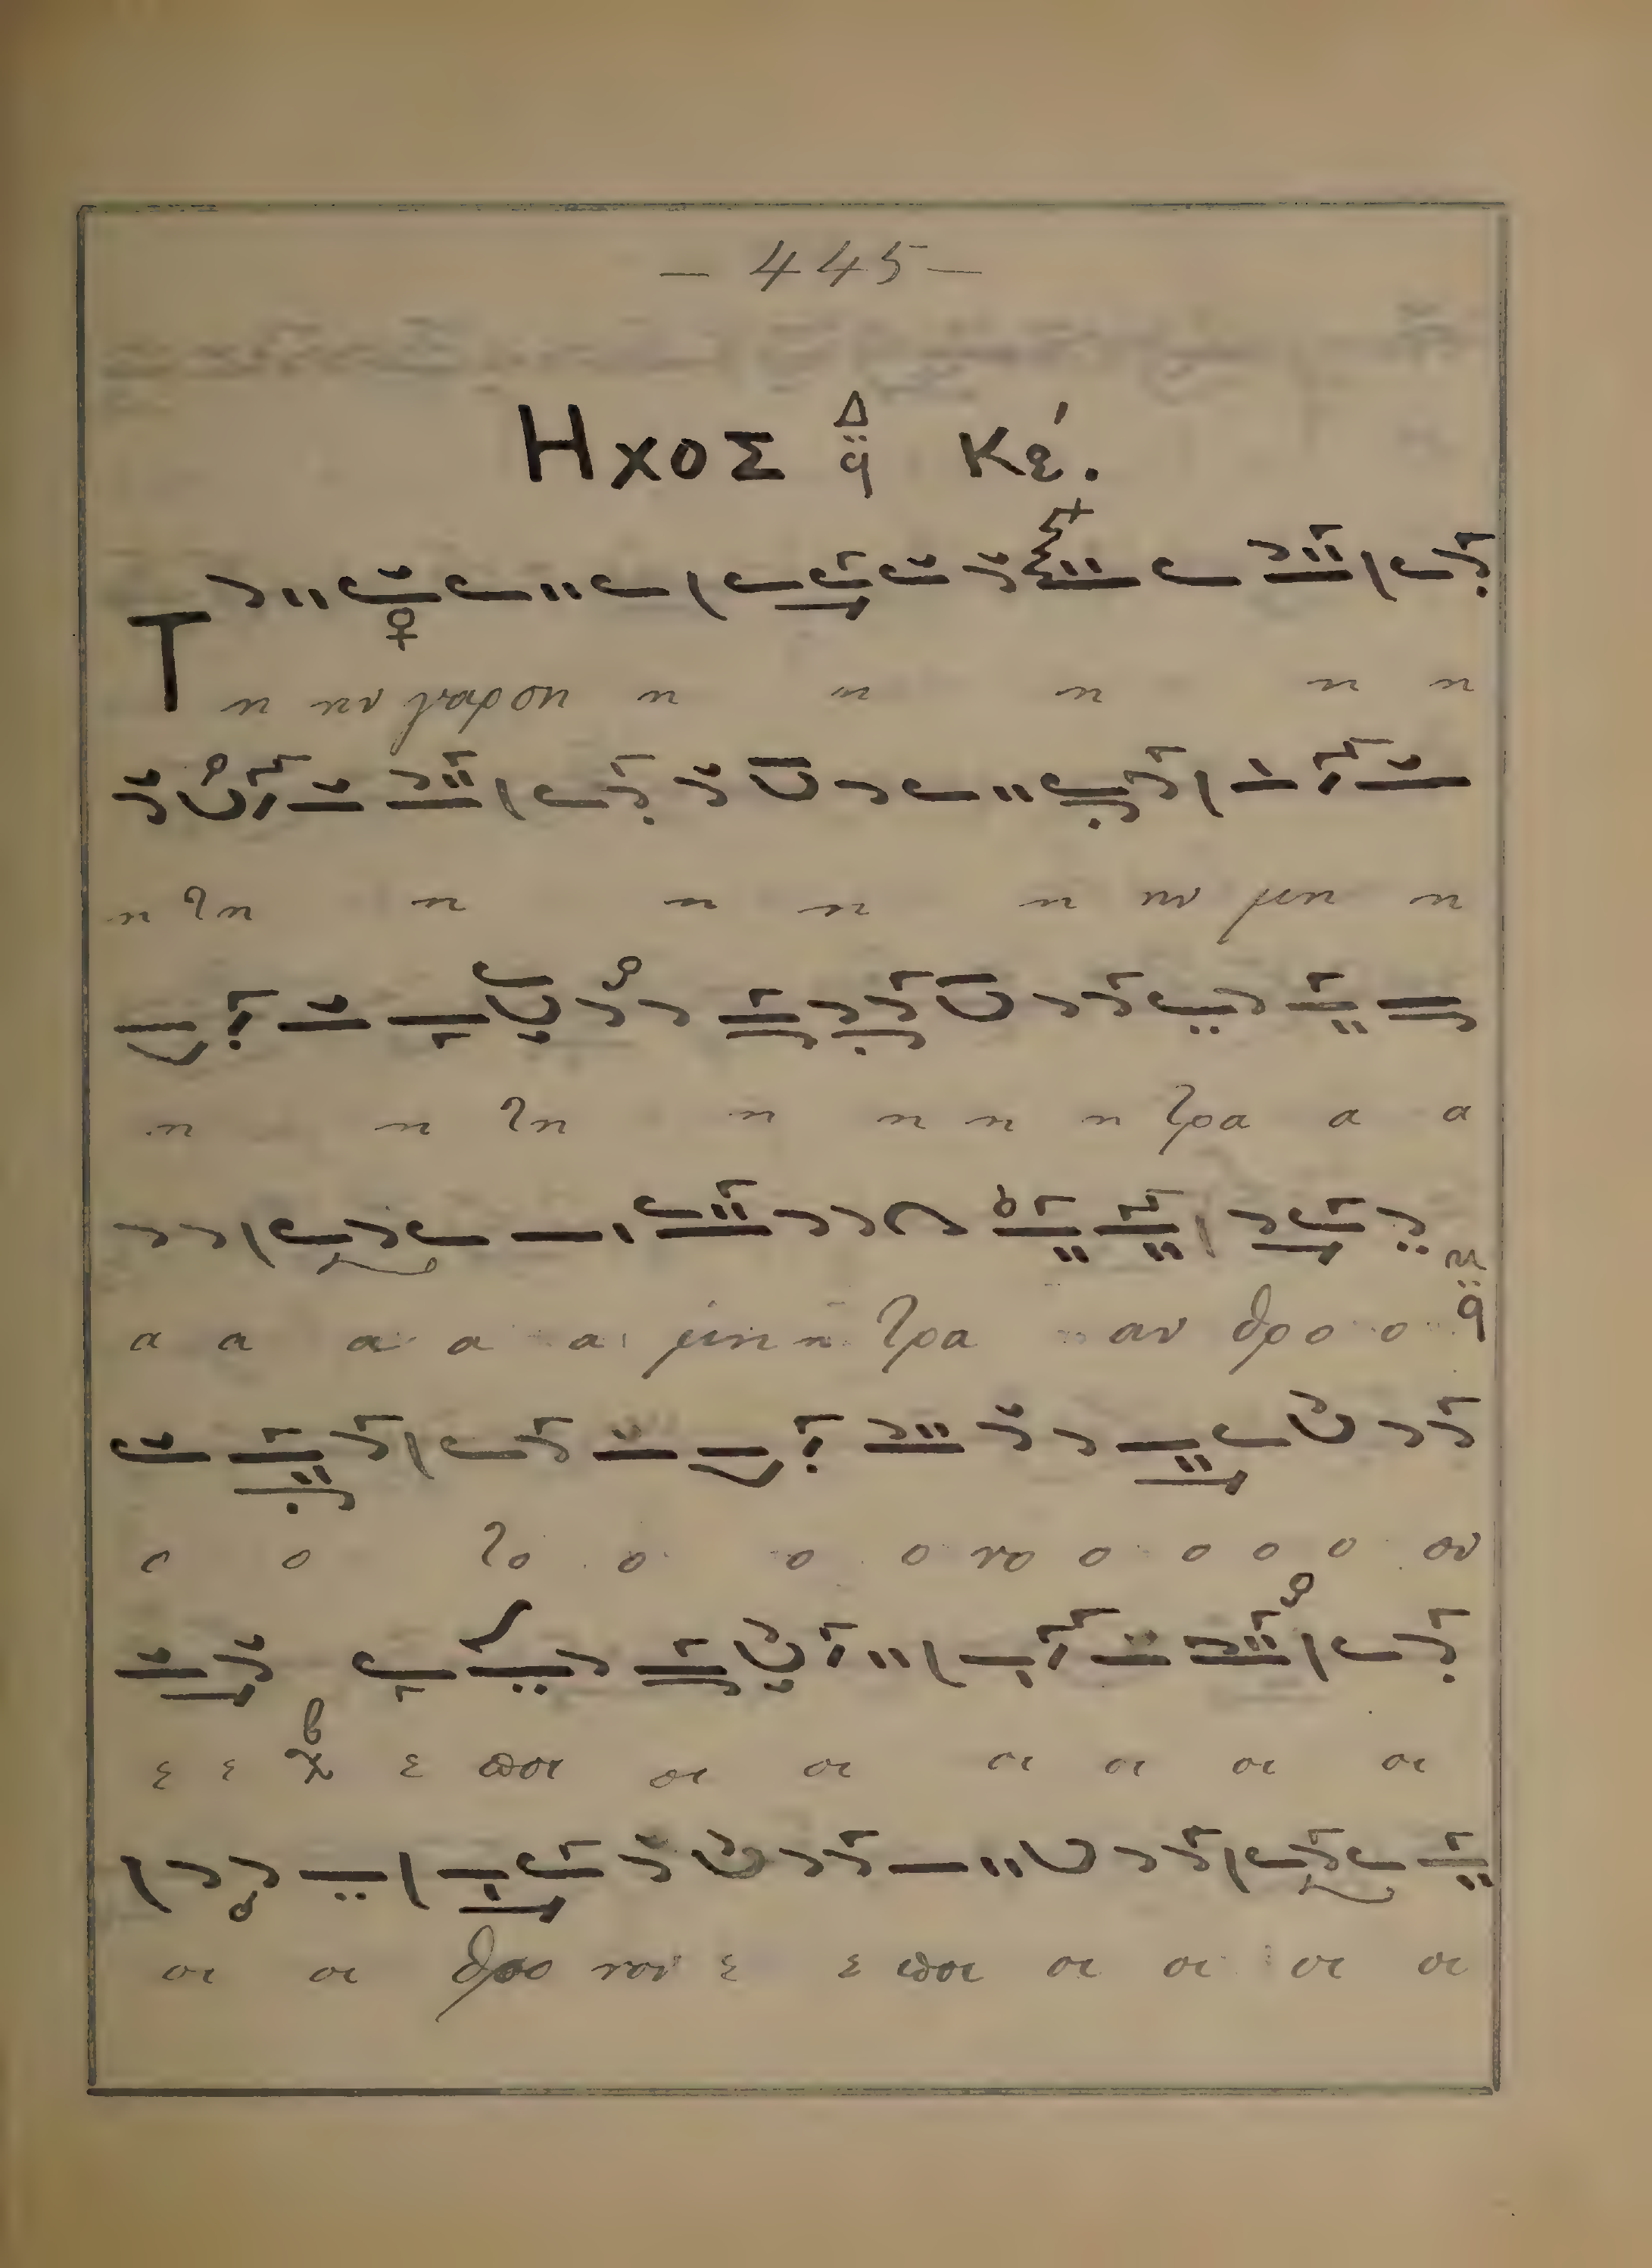 — 445 —
Ηχος Δ ϥ Κε΄.
Τ η ην γαρ ση η η η η η
η τη η η η η ην μη η
η η τη η η η η τρα α α
α α α α α μη η τρα αν θρο ο
ο ο το ο ο ο νο ο ο ο ο ον
ε ε ε ποι οι οι οι οι οι οι
οι οι θρο νον ε ε ποι οι οι οι οι